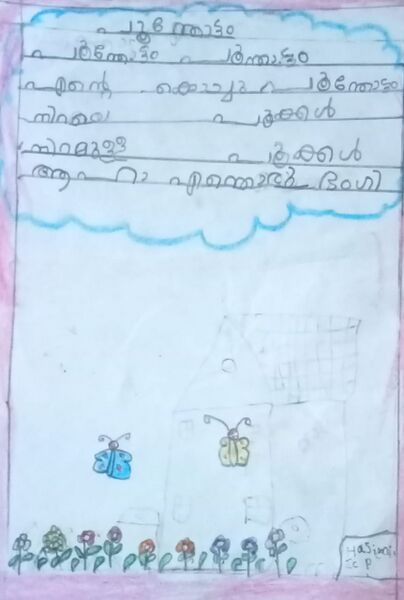 പൂന്തോട്ടം
പൂന്തോട്ടം പൂന്തോട്ടം
എന്റെ കൊച്ചു പൂന്തോട്ടം
നിറയെ പൂക്കൾ
നിറമുള്ള പൂക്കൾ
ആഹാ എന്തൊരു ഭംഗി